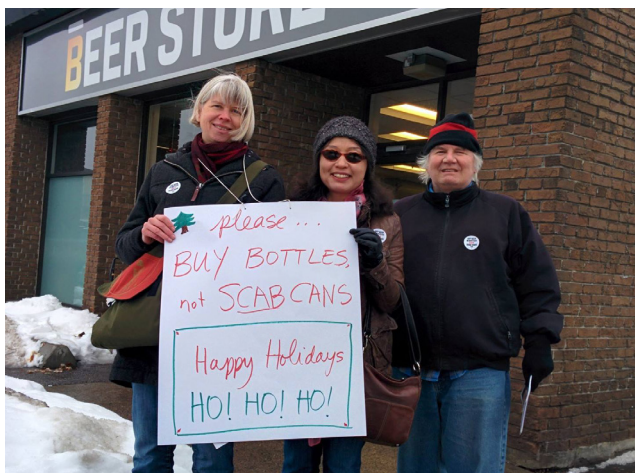 BEER STORE
please...
BUY BOTTLES,
not SCAB CANS
Happy Holidays
HO! HO! HO!